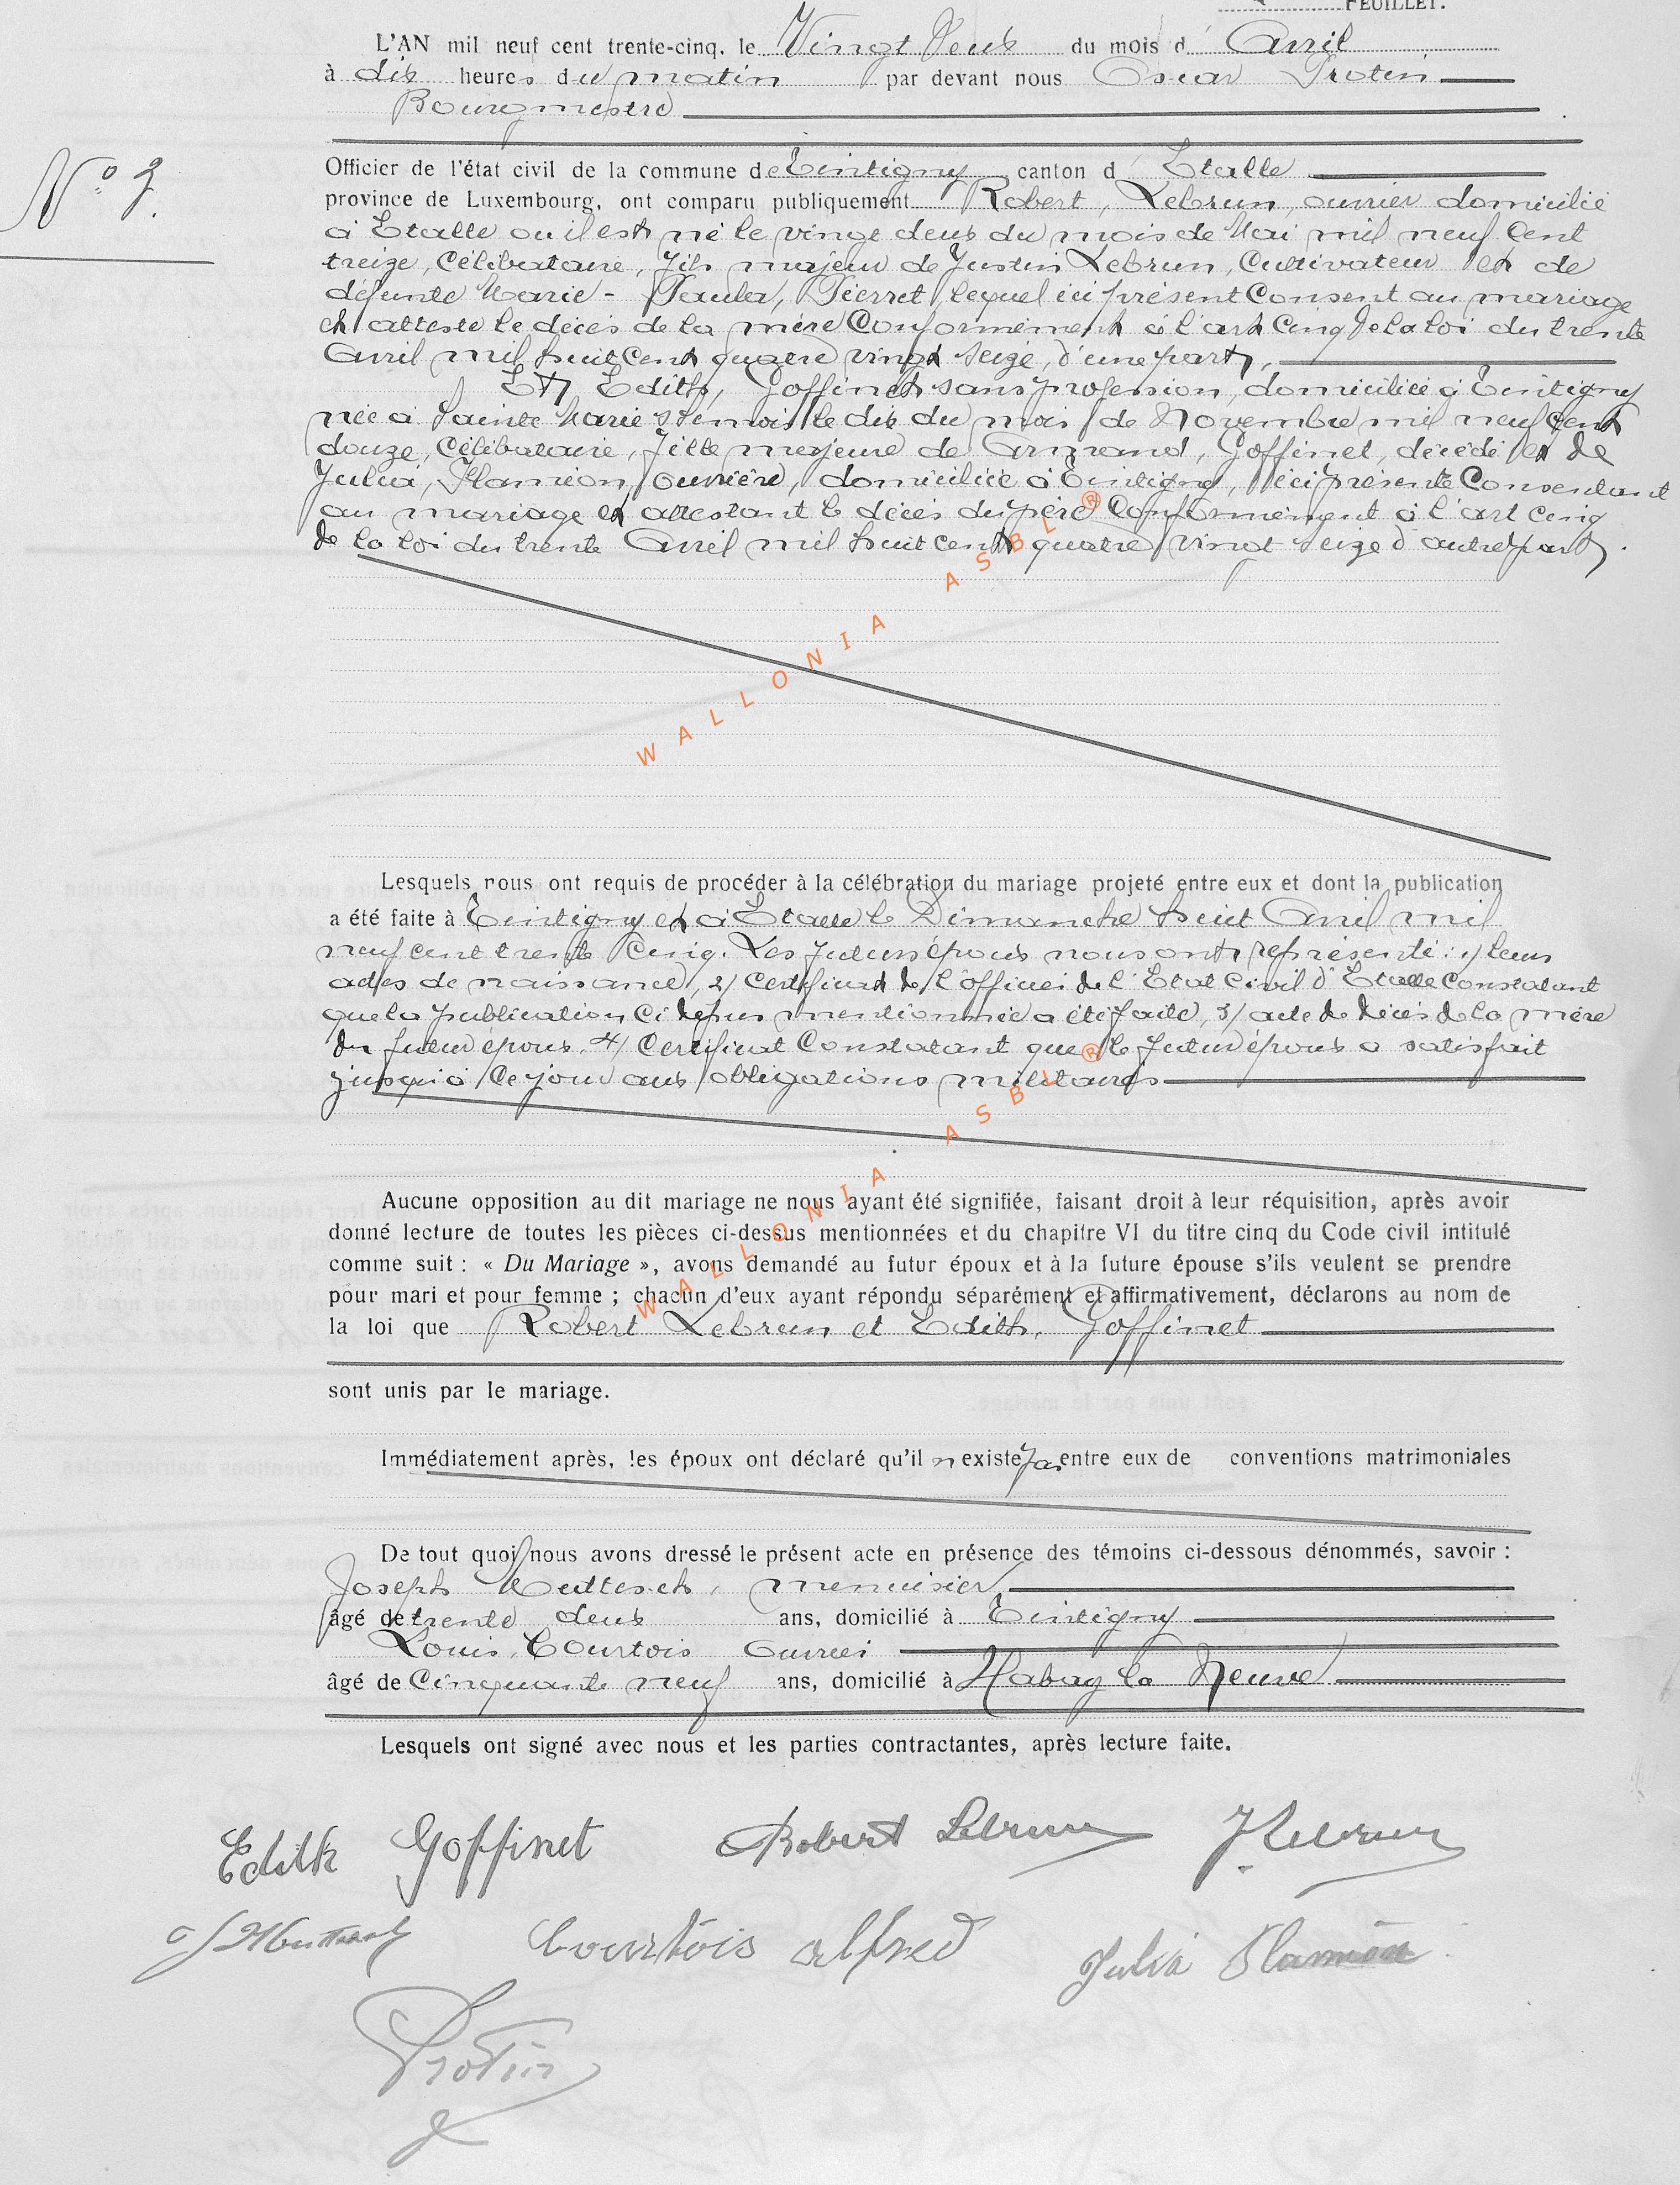 FEUILLET.
L'AN mil neuf cent trente-cinq, le Vingt deux du mois d' Avril
à dix heures du matin par devant nous Oscar Protin
Bourgmestre
N°
Officier de l'état civil de la commune de Tintigny canton d' Etalle
province de Luxembourg, ont comparu publiquement Robert, Lebrun, ouvrier domicilié
à Etalle ou il est né le vingt deux du mois de Mai mil neuf cent
treize, Célibataire, fils majeur de Justin Lebrun, Cultivateur et de
défunte Marie - Paula, Pierret, lequel ici présent Consent au mariage
et atteste le décès de la mère Conformément à l'art Cinq de la loi du trente
Avril mil huit Cent quatre vingt seize, d'une part,
Et Edith, Goffinet sans profession, domiciliée à Tintigny
née à Sainte Marie s/Semois le dix du mois de Novembre mil neuf cent
douze, Célibataire, fille majeure de Armand, Goffinet, décédé et de
Julia, Flamion, ouvrière, domiciliée à Tintigny, ici présente Consentant
au mariage et attestant le décès du père Conformément à l'art cinq
de la loi du trente Avril mil huit cent quatre vingt seize d'autre part.
WALLONIA ASBL ®
Lesquels nous ont requis de procéder à la célébration du mariage projeté entre eux et dont la publication
a été faite à Tintigny et à Etalle le Dimanche huit Avril mil
neuf cent trente Cinq. Les futurs époux nous ont représenté : 1/ leurs
actes de naissance, 2/ Certificat de l'officier de l'Etat Civil d'Etalle Constatant
que la publication Ci dessus mentionnée a été faite, 3/ acte de décès de la mère
du futur époux. 4/ Certificat Constatant que le futur époux a satisfait
jusqu'à ce jour aux obligations militaires
WALLONIA ASBL ®
Aucune opposition au dit mariage ne nous ayant été signifiée, faisant droit à leur réquisition, après avoir
donné lecture de toutes les pièces ci-dessus mentionnées et du chapitre VI du titre cinq du Code civil intitulé
comme suit : « Du Mariage », avons demandé au futur époux et à la future épouse s'ils veulent se prendre
pour mari et pour femme ; chacun d'eux ayant répondu séparément et affirmativement, déclarons au nom de
la loi que Robert Lebrun et Edith, Goffinet
sont unis par le mariage.
Immédiatement après, les époux ont déclaré qu'il n existe pas entre eux de conventions matrimoniales
De tout quoi nous avons dressé le présent acte en présence des témoins ci-dessous dénommés, savoir :
Joseph menuisier,
âgé de trente deux ans, domicilié à Tintigny
Louis, Courtois Ouvrier
âgé de Cinquante neuf ans, domicilié à Habay la Neuve
Lesquels ont signé avec nous et les parties contractantes, après lecture faite.
Edith Goffinet Robert Lebrun J Lebrun
Courtois alfred Julia Flamion
Protin